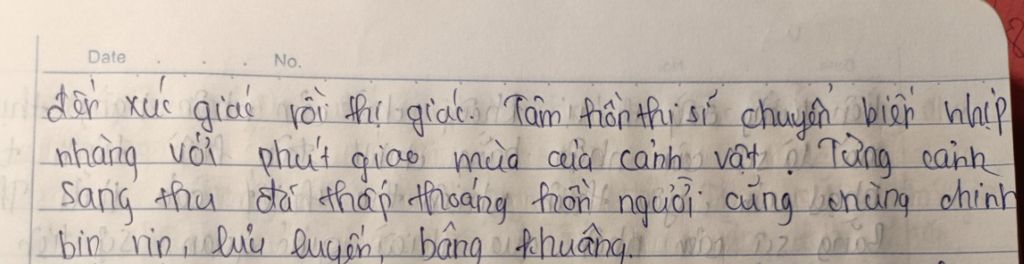 Date . . . No.
đến xúc giác rồi thị giác. Tâm hồn thi sĩ chuyển biến nhịp
nhàng với phút giao mùa của cảnh vật. Từng cảnh
sang thu đã thấp thoáng hồn người cũng chùng chình
bịn rịn, lưu luyến, bâng khuâng.